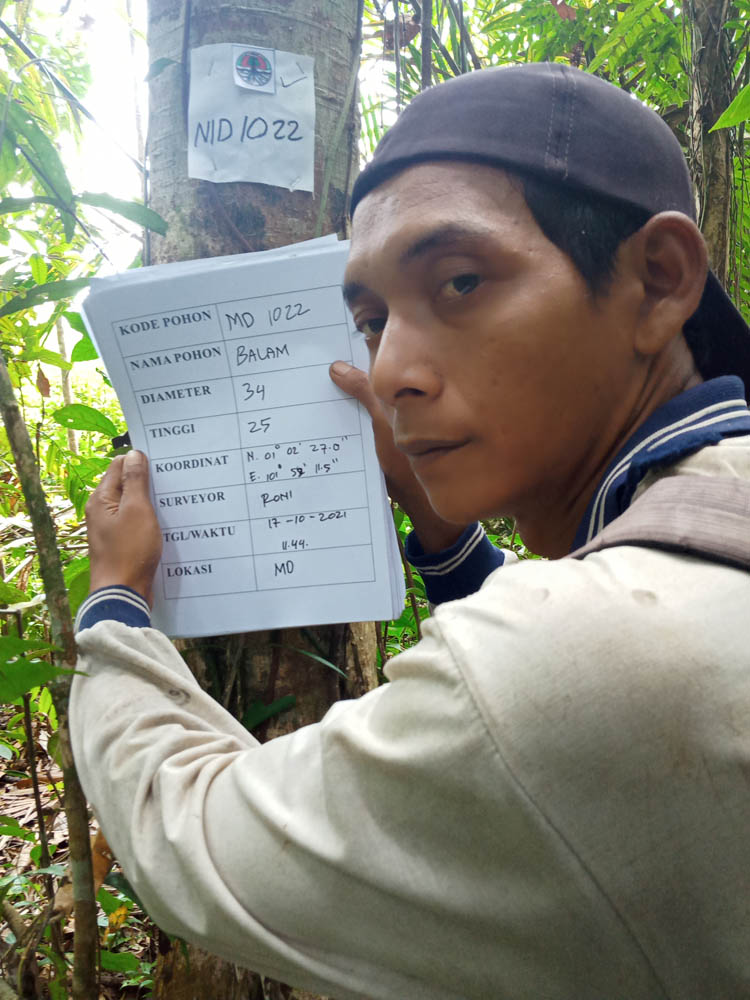 MD 1022
KODE POHON MD 1022
NAMA POHON BALAM
DIAMETER 34
TINGGI 25
KOORDINAT N. 01° 02' 27.0"
E. 101° 52' 11.5"
SURVEYOR RONI
TGL/WAKTU 17-10-2021
11.44.
LOKASI MD